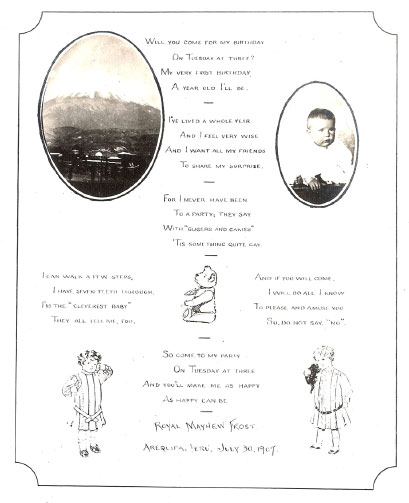 WILL YOU COME FOR MY BIRTHDAY
ON TUESDAY AT THREE?
MY VERY FIRST BIRTHDAY,
A YEAR OLD I'LL BE.
I'VE LIVED A WHOLE YEAR
AND I FEEL VERY WISE
AND I WANT ALL MY FRIENDS
TO SHARE MY SURPRISE.
FOR I NEVER HAVE BEEN
TO A PARTY; THEY SAY
WITH "GUGERS AND CAKIES"
'TIS SOMETHING QUITE GAY.
I CAN WALK A FEW STEPS,
I HAVE SEVEN TEETH THROUGH,
I'M THE "CLEVEREST BABY"
THEY ALL TELL ME, TOO,
AND IF YOU WILL COME,
I WILL DO ALL I KNOW
TO PLEASE AND AMUSE YOU
SO, DO NOT SAY "NO".
SO COME TO MY PARTY
ON TUESDAY AT THREE
AND YOU'LL MAKE ME AS HAPPY
AS HAPPY CAN BE
ROYAL MAYHEW FROST
AREQUIPA, PERU, JULY 30, 1907.